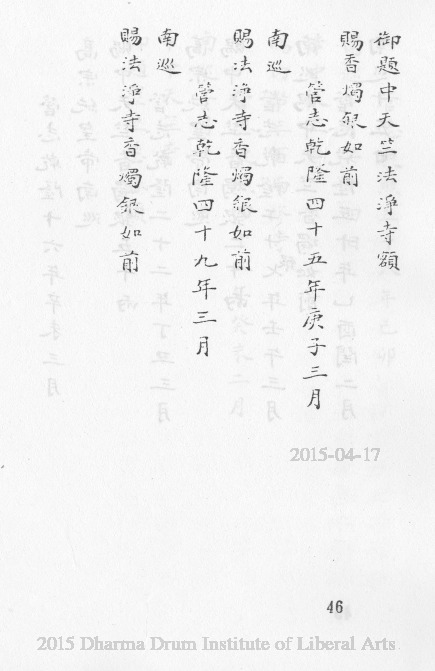 御題中天竺法淨寺額
賜香燭銀如前
管志乾隆四十五年庚子三月
南巡
賜法淨寺香燭銀如前
管志乾隆四十九年三月
南巡
賜法淨寺香燭銀如前
2015-04-17
46
2015 Dharma Drum Institute of Liberal Arts